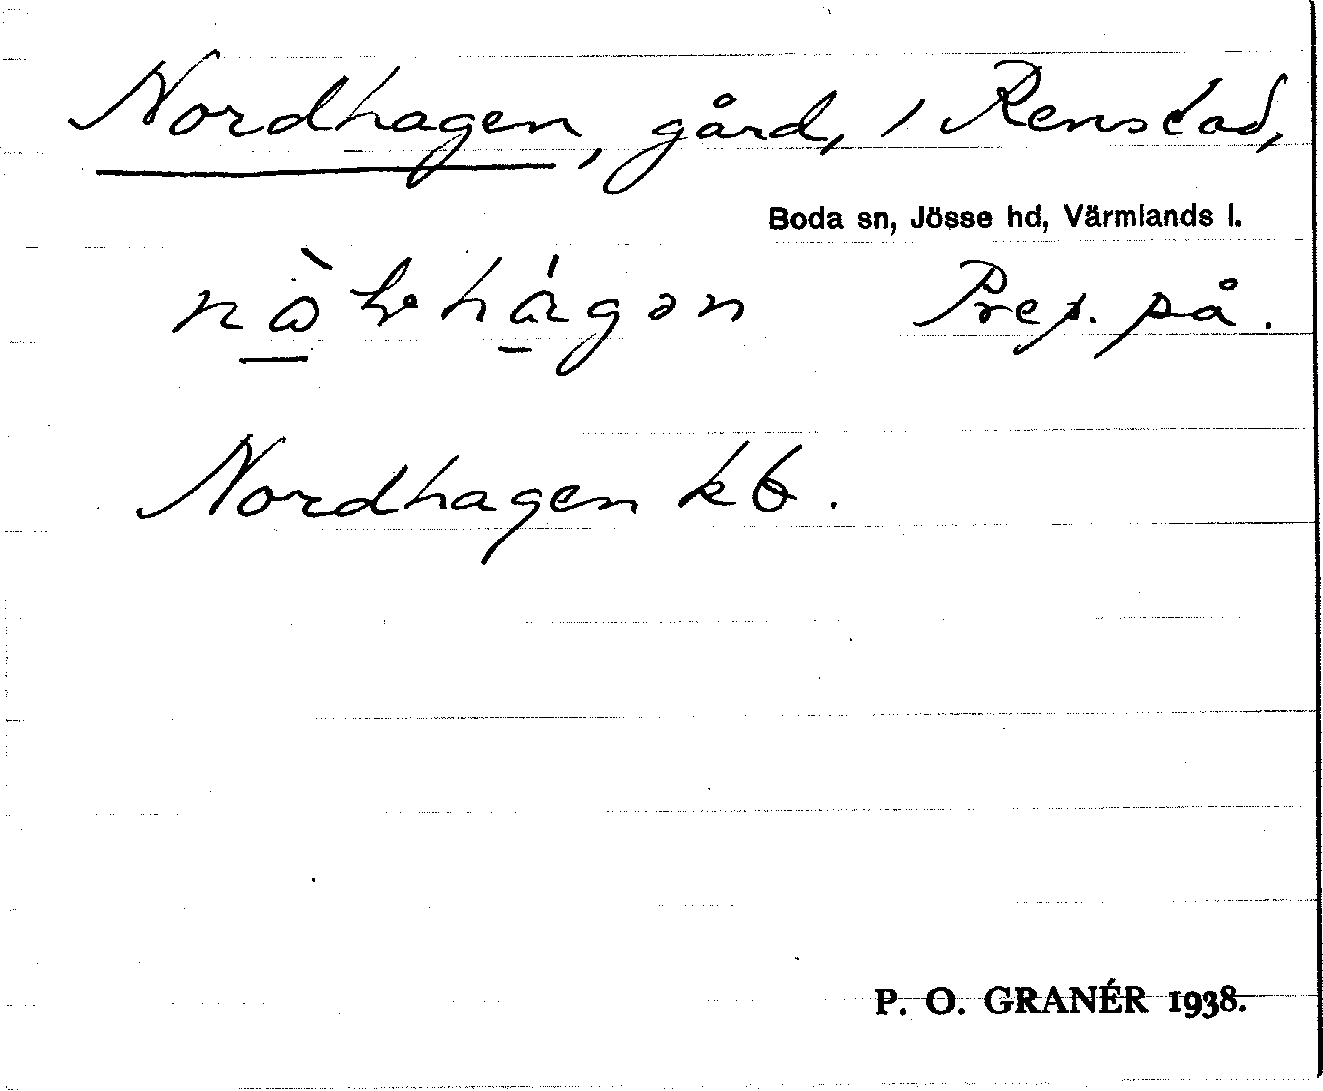 Nordhagen, gård, i Renstad,
Boda sn, Jösse hd, Värmlands l.
Prep. på.
Nordhagen kb.
P. O. GRANÉR 1938.